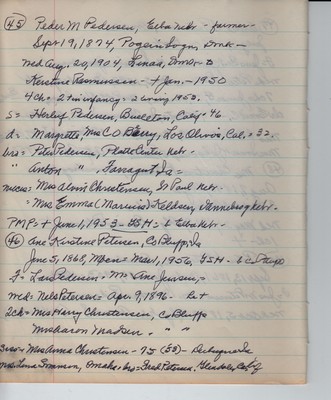 (45) Peder M Pedersen, Elba Nebr - farmer -
Sept 19, 1874, Dmk -
Md. Aug. 20, 1904,
Kerstine Rasmussen - + Jan. - 1950
4 ch = 2 + in infancy = 2 living 1953.
s = Herluf Pedersen, Buellton, Calif = 46
d = Margrette, Mrs C O Berry, Los Olivos, Cal. = 32.
bros = Peter Pedersen, Platte Center Nebr.
" Anton " , Farragut Ia =
nieces = Mrs Alvin Christensen, St Paul Nebr.
= Mrs Emma (Marinus) Keldsen, Dannebrog Nebr.
PMP = + June 1, 1953 - FSH = b Elba Nebr -
(46) Ane Kirstine Petersen, Co Bluffs, Ia
June 5, 1868, = Mar 1, 1956, FSH -
F = Lars Pedersen - M = Ane Jensen, =
Md = Nels Petersen = Apr 9, 1896 -
2 ch = Mrs Harry Christensen, Co Bluffs
Mrs Aaron Madsen - " "
Mrs Anna Christensen - 75 (53) -
Mrs Lena Simonson, Omaha = bro = Fred Petersen, Glendale, Calif